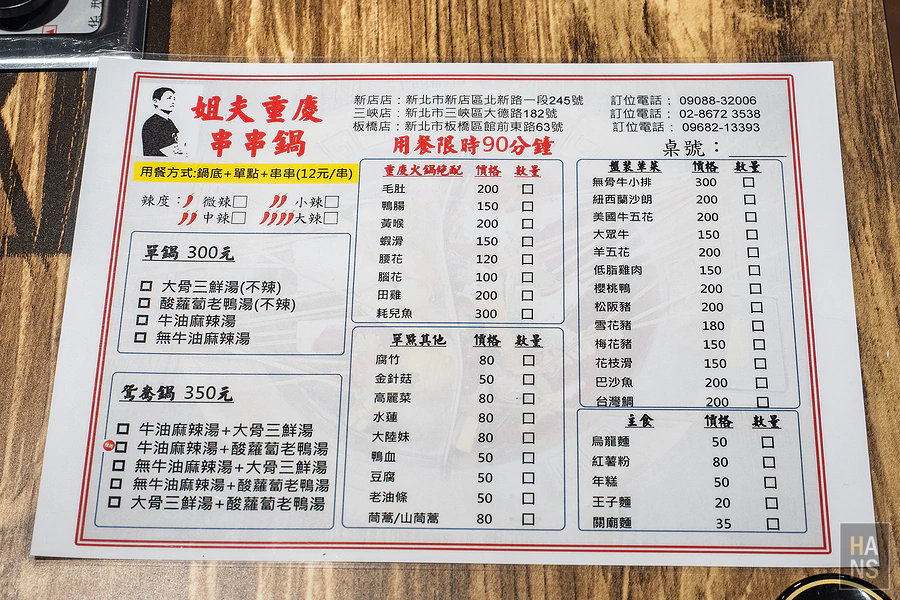 姐夫重慶
串串鍋
新店店：新北市新店區北新路一段245號 訂位電話： 09088-32006
三峽店：新北市三峽區大德路182號 訂位電話： 02-8672 3538
板橋店：新北市板橋區館前東路63號 訂位電話： 09682-13393
用餐限時90分鐘
桌號：
用餐方式:鍋底+單點+串串(12元/串)
辣度： 微辣□ 小辣□
中辣□ 大辣□
單鍋 300元
□ 大骨三鮮湯(不辣)
□ 酸蘿蔔老鴨湯(不辣)
□ 牛油麻辣湯
□ 無牛油麻辣湯
鴛鴦鍋 350元
□ 牛油麻辣湯+大骨三鮮湯
□ 牛油麻辣湯+酸蘿蔔老鴨湯
□ 無牛油麻辣湯+大骨三鮮湯
□ 無牛油麻辣湯+酸蘿蔔老鴨湯
□ 大骨三鮮湯+酸蘿蔔老鴨湯
重慶火鍋絕配 價格 數量
毛肚 200 □
鴨腸 150 □
黃喉 200 □
蝦滑 150 □
腰花 120 □
腦花 100 □
田雞 200 □
耗兒魚 300 □
單點其他 價格 數量
腐竹 80 □
金針菇 50 □
高麗菜 80 □
水蓮 80 □
大陸妹 80 □
鴨血 50 □
豆腐 50 □
老油條 50 □
茼蒿/山茼蒿 80 □
盤裝葷菜 價格 數量
無骨牛小排 300 □
紐西蘭沙朗 200 □
美國牛五花 200 □
大眾牛 150 □
羊五花 200 □
低脂雞肉 150 □
櫻桃鴨 200 □
松阪豬 200 □
雪花豬 180 □
梅花豬 150 □
花枝滑 150 □
巴沙魚 200 □
台灣鯛 200 □
主食 價格 數量
烏龍麵 50 □
紅薯粉 80 □
年糕 50 □
王子麵 20 □
關廟麵 35 □
HA
NS